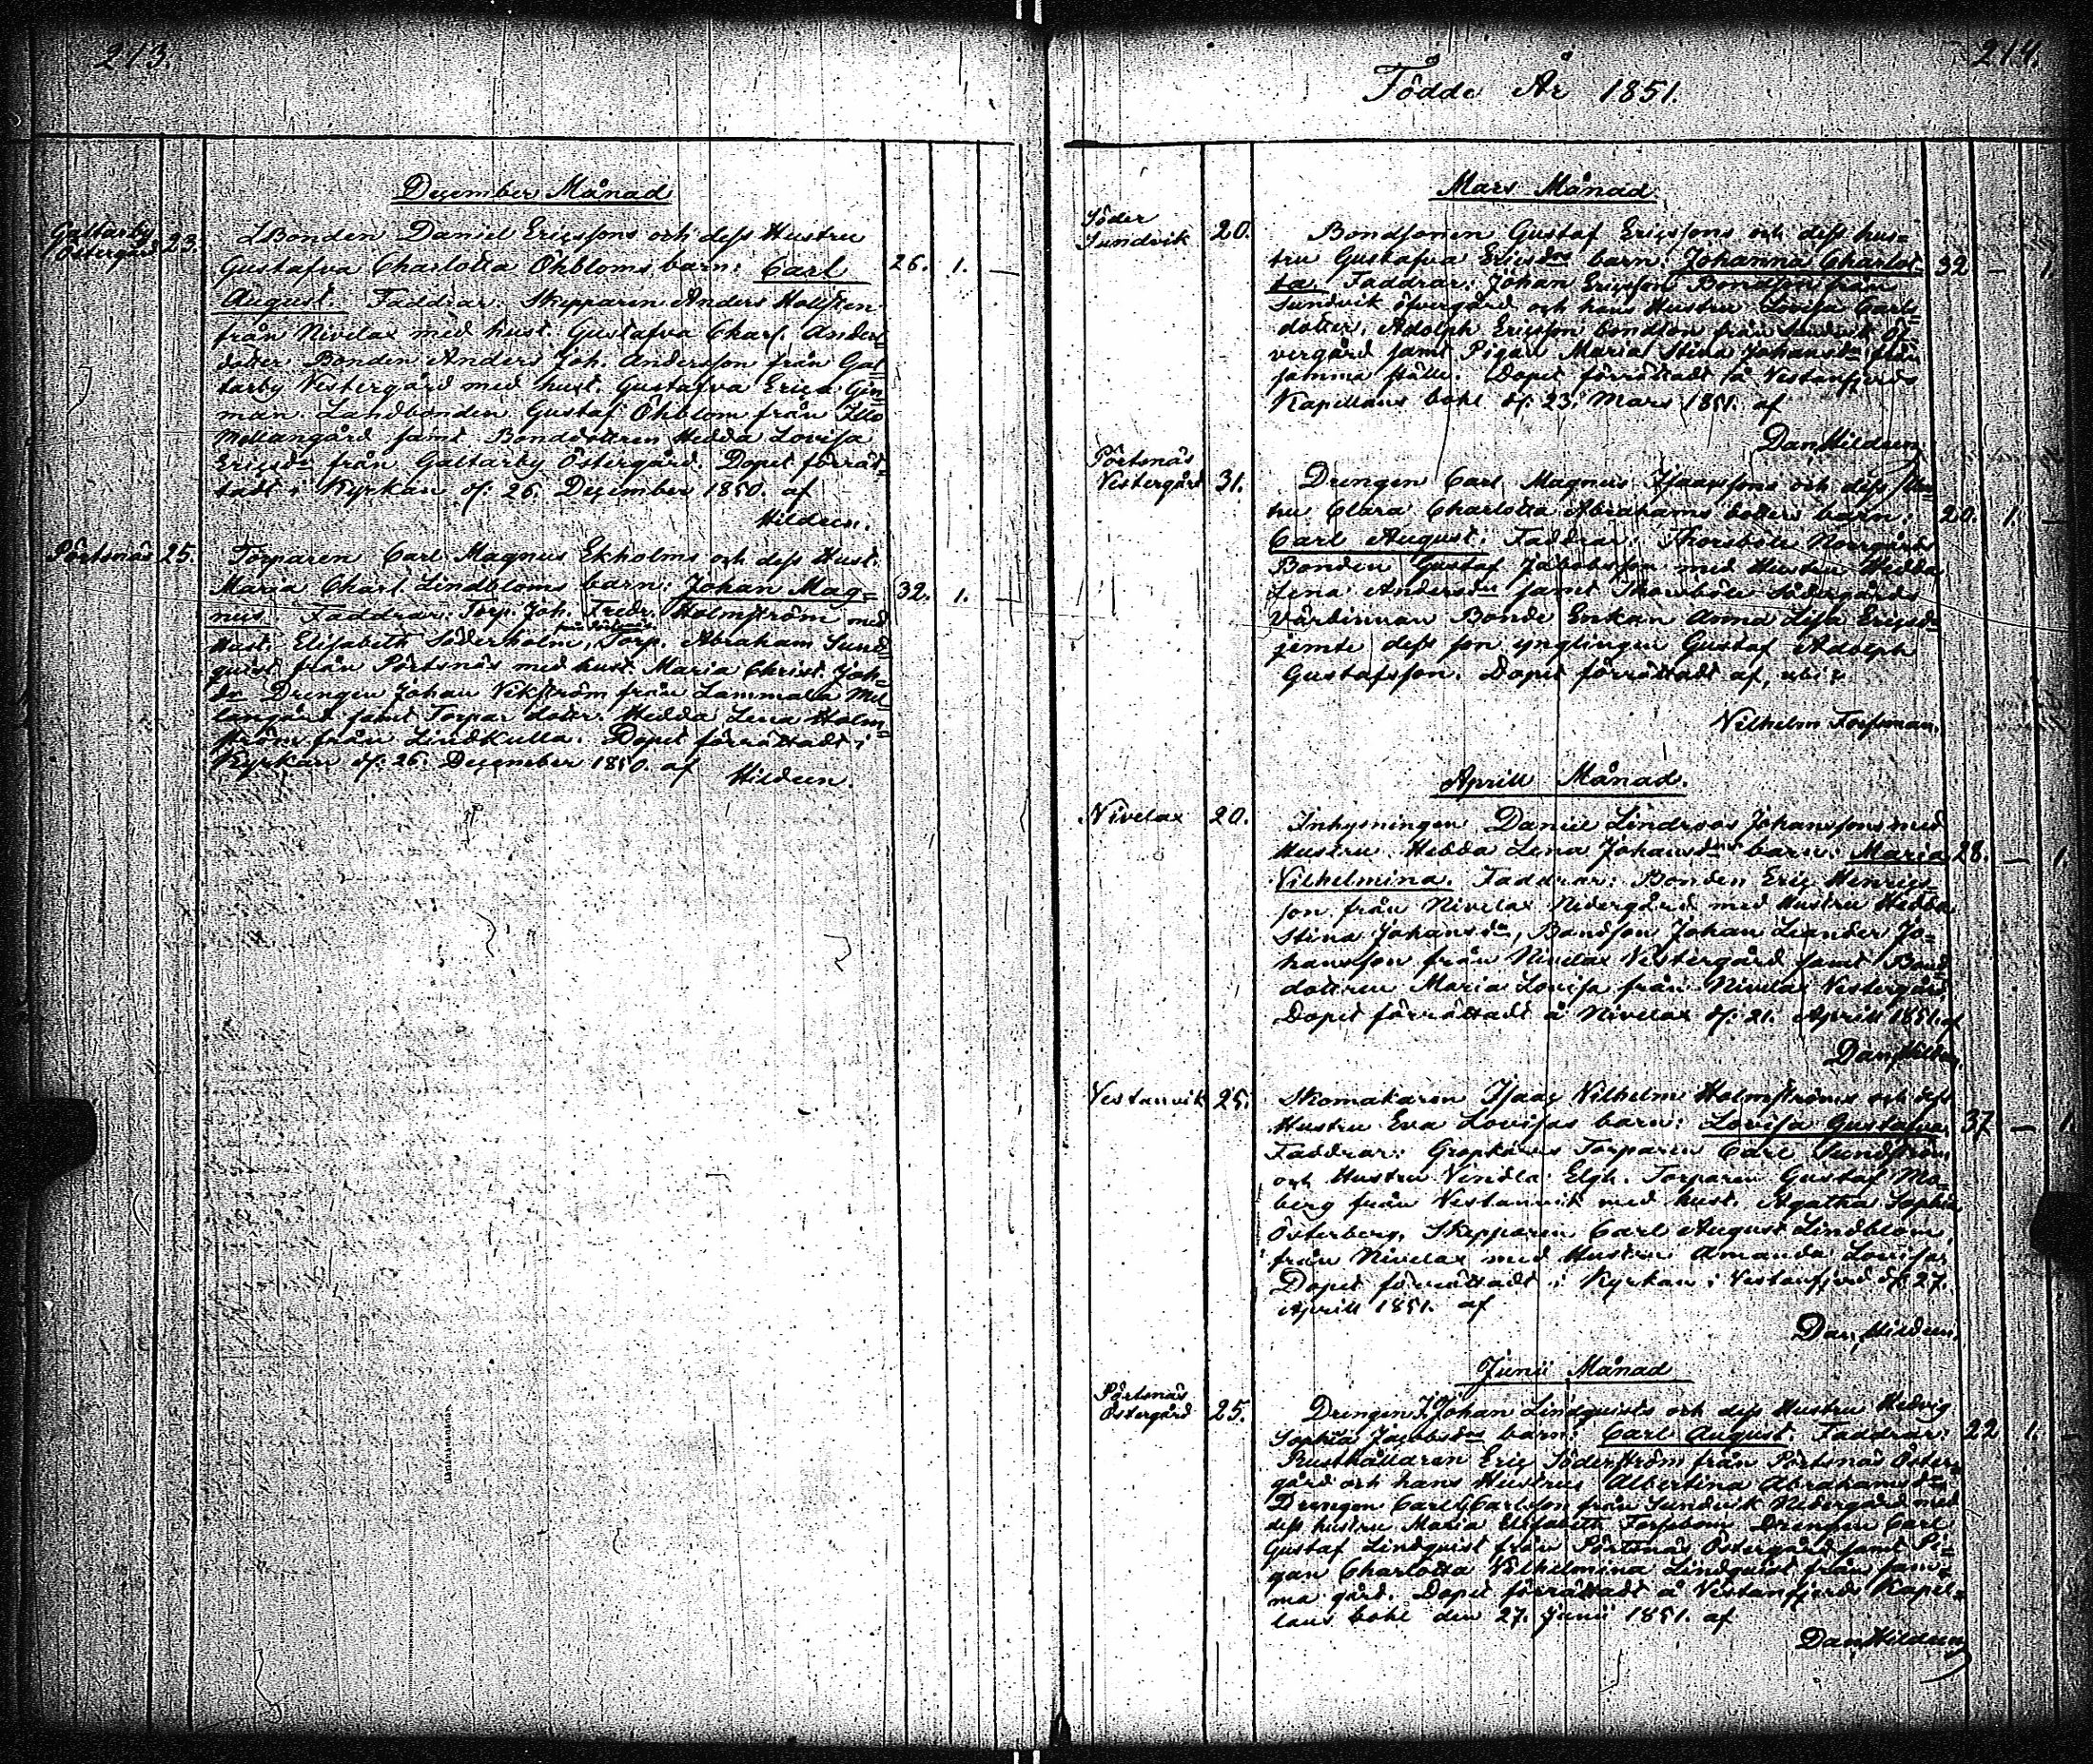 213.
December Månad
Galtarby
Östergård 23.
LBonden Daniel Ericssons och dess Hustru
Gustafva Charlotta Öhbloms barn: Carl 26. 1. —
August. Faddrar. Skepparen Anders Holsten
från Nivelax med hust. Gustafva Charl. Anders
dotter. Bonden Anders Joh. Andersson från Gal=
tarby Vestergård med hust. Gustafva Erica Gin=
man. Landbonden Gustaf Öhblom från Illo
Mellangård samt Bonddottren Hedda Lovisa
Ericsdr från Galtarby Östergård. Dopet förrät=
tadt i Kyrkan d: 26. December 1850. af
Hildeen.
Pörtsnäs 25.
Torparen Carl Magnus Ekholms och dess Hust.
Maria Charl. Lindbloms barn: Johan Mag= 32. 1. —
nus. Faddrar: Torp. Joh. Fredr. Holmström med
hust. Elisabeth Söderholm, Torp. Abraham Sund=
quist från Pörtsnäs med hust. Maria Christ. Joh=
dr Drengen Johan Vikström från Lammala Mel=
langård samt Torpar dotter. Hedda Lena Holm=
ström från Lindkulla. Dopet förrättadt i
Kyrkan d: 26. December 1850. af
Hildeen.
214.
Födde År 1851.
Mars Månad.
Söder
Sundvik 20.
Bondsonen Gustaf Ericssons och dess hus=
tru Gustafva Ericsdrs barn: Johanna Charlot= 32 — 1.
ta. Faddrar: Johan Ericsson Bondson från
Sundvik öfvergård och hans Hustru Lovisa Carls
dotter. Adolph Ericsson bondson från Sundvik Öf=
vergård samt Pigan Maria Stina Johansdr från
samma ställe. Dopet förrättadt å Vestanfjerds
Kapellans bohl d: 23. Mars 1851. af
Dan Hildeen
Pörtsnäs
Vestergård 31.
Drengen Carl Magnus Isaacssons och dess hus=
tru Clara Charlotta Abrahams dotters barn: 20. 1. —
Carl August. Faddrar: Thorsböle Norrgårds
Bonden Gustaf Jakobsson med Hustru Hedda
Lena Andersdr samt Thorsböle Södergårds
Värdinnan Bonde Enkan Anna Lisa Ericsdr
jemte dess son ynglingen Gustaf Adolph
Gustafsson. Dopet förrättadt af,
Vilhelm Forssman.
Aprill Månad.
Nivelax 20.
Inhysningen Daniel Lindroos Johanssons med
Hustru Hedda Lena Johansdrs barn: Maria 28. — 1
Vilhelmina. Faddrar: Bonden Eric Henrics=
son från Nivelax Nedergård med Hustru Hedda
Stina Johansdr, Bondson Johan Leander Jo=
hansson från Nivelax Vestergård samt Bond=
dottren Maria Lovisa från Nivelax Vestergård
Dopet förrättadt å Nivelax d: 21. Aprill 1851. af
Dan Hildeen
Vestanvik 25.
Skomakaren Isaac Vilhelm Holmströms och dess
Hustru Eva Lovisas barn: Lovisa Gustafva. 37 — 1.
Faddrar: Torparen Carl Sundström
och Hustru Vendla Elgh. Torparen Gustaf Mo=
berg från Vestanvik med hust. Agatha Sophia
Österberg, Skepparen Carl August Lindblom,
från Nivelax med Hustru Amanda Lovisa.
Dopet förrättadt i Kyrkan i Vestanfjerd d: 27.
Aprill 1851. af
Dan Hildeen
Junii Månad
Pörtsnäs
Östergård 25.
Drengen Johan Lindquists och dess Hustru Hedvig
Sophia Jacobsdrs barn: Carl August. Faddrar: 22 1. —
Rusthållaren Eric Söderström från Pörtsnäs Öster=
gård och hans Hustru Albertina Abrahamsdr
Drengen Carl Carlsson från Sundvik Nedergård med
dess hustru Maria Elisabeth Forsbom Drengen Carl
Gustaf Lindquist från Pörtsnäs Östergård samt Pi=
gan Charlotta Vilhelmina Lindquist från sam=
ma gård. Dopet förrättadt å Vestanfjerds Kapel=
lans bohl den 27. Junii 1851. af
Dan Hildeen